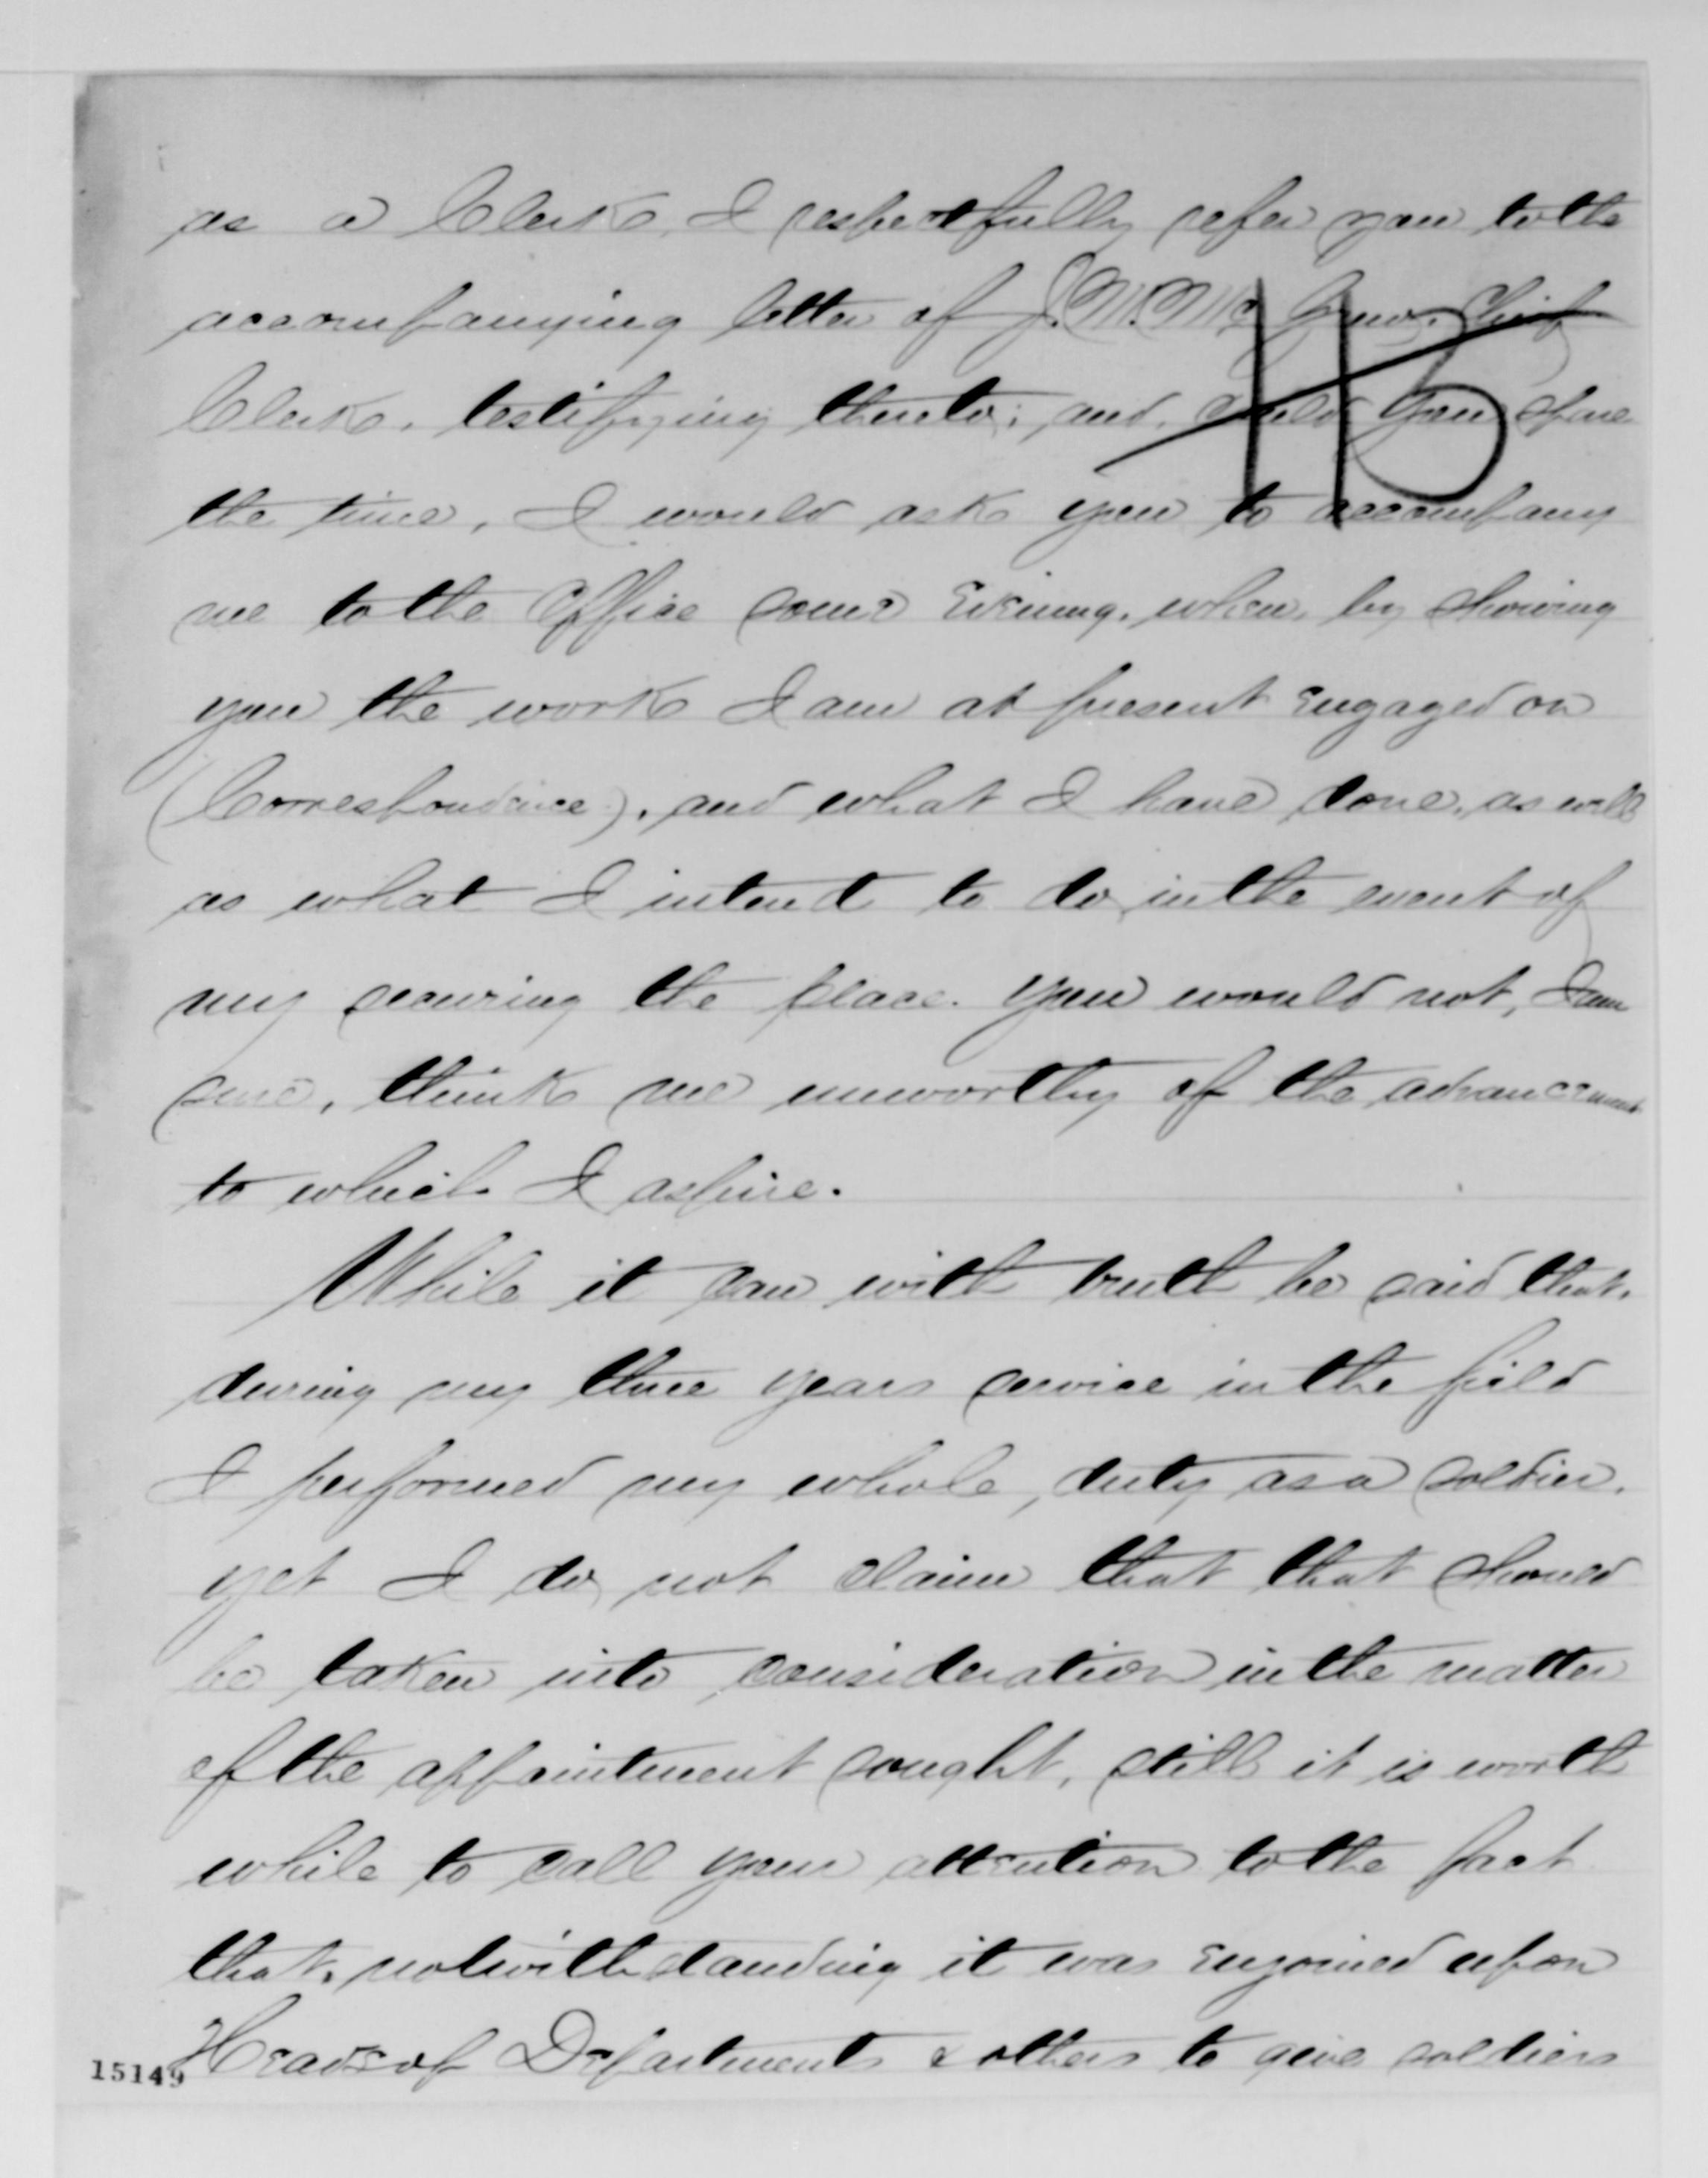 as a Clerk, I respectfully refer you to the
accompanying letter of J. M. McGrew, Chief
Clerk, testifying thereto; and, could you spare
the time, I would ask you to accompany
me to the Office some evening, when, by showing
you the work I am at present engaged on
(Correspondence), and what I have done, as well
as what I intend to do, in the event of
my securing the place. You would not, I am
sure, think me unworthy of the advancement
to which I aspire.
While it can with truth be said that,
during my three years service in the field
I performed my whole, duty as a soldier,
yet I do not claim that that should
be taken into consideration in the matter
of the appointment sought, still it is worth
while to call your attention to the fact
that, notwithstanding it was enjoined upon
Heads of Departments & others to give soldiers
115
15149